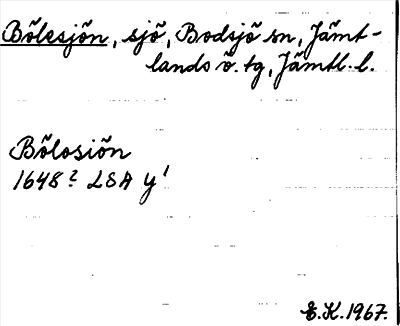 Bölesjön, sjö, Bodsjö sn, Jämt-
lands ö. tg, Jämtl. l.
Bölosiön
1648? LSA y'
E.K. 1967.